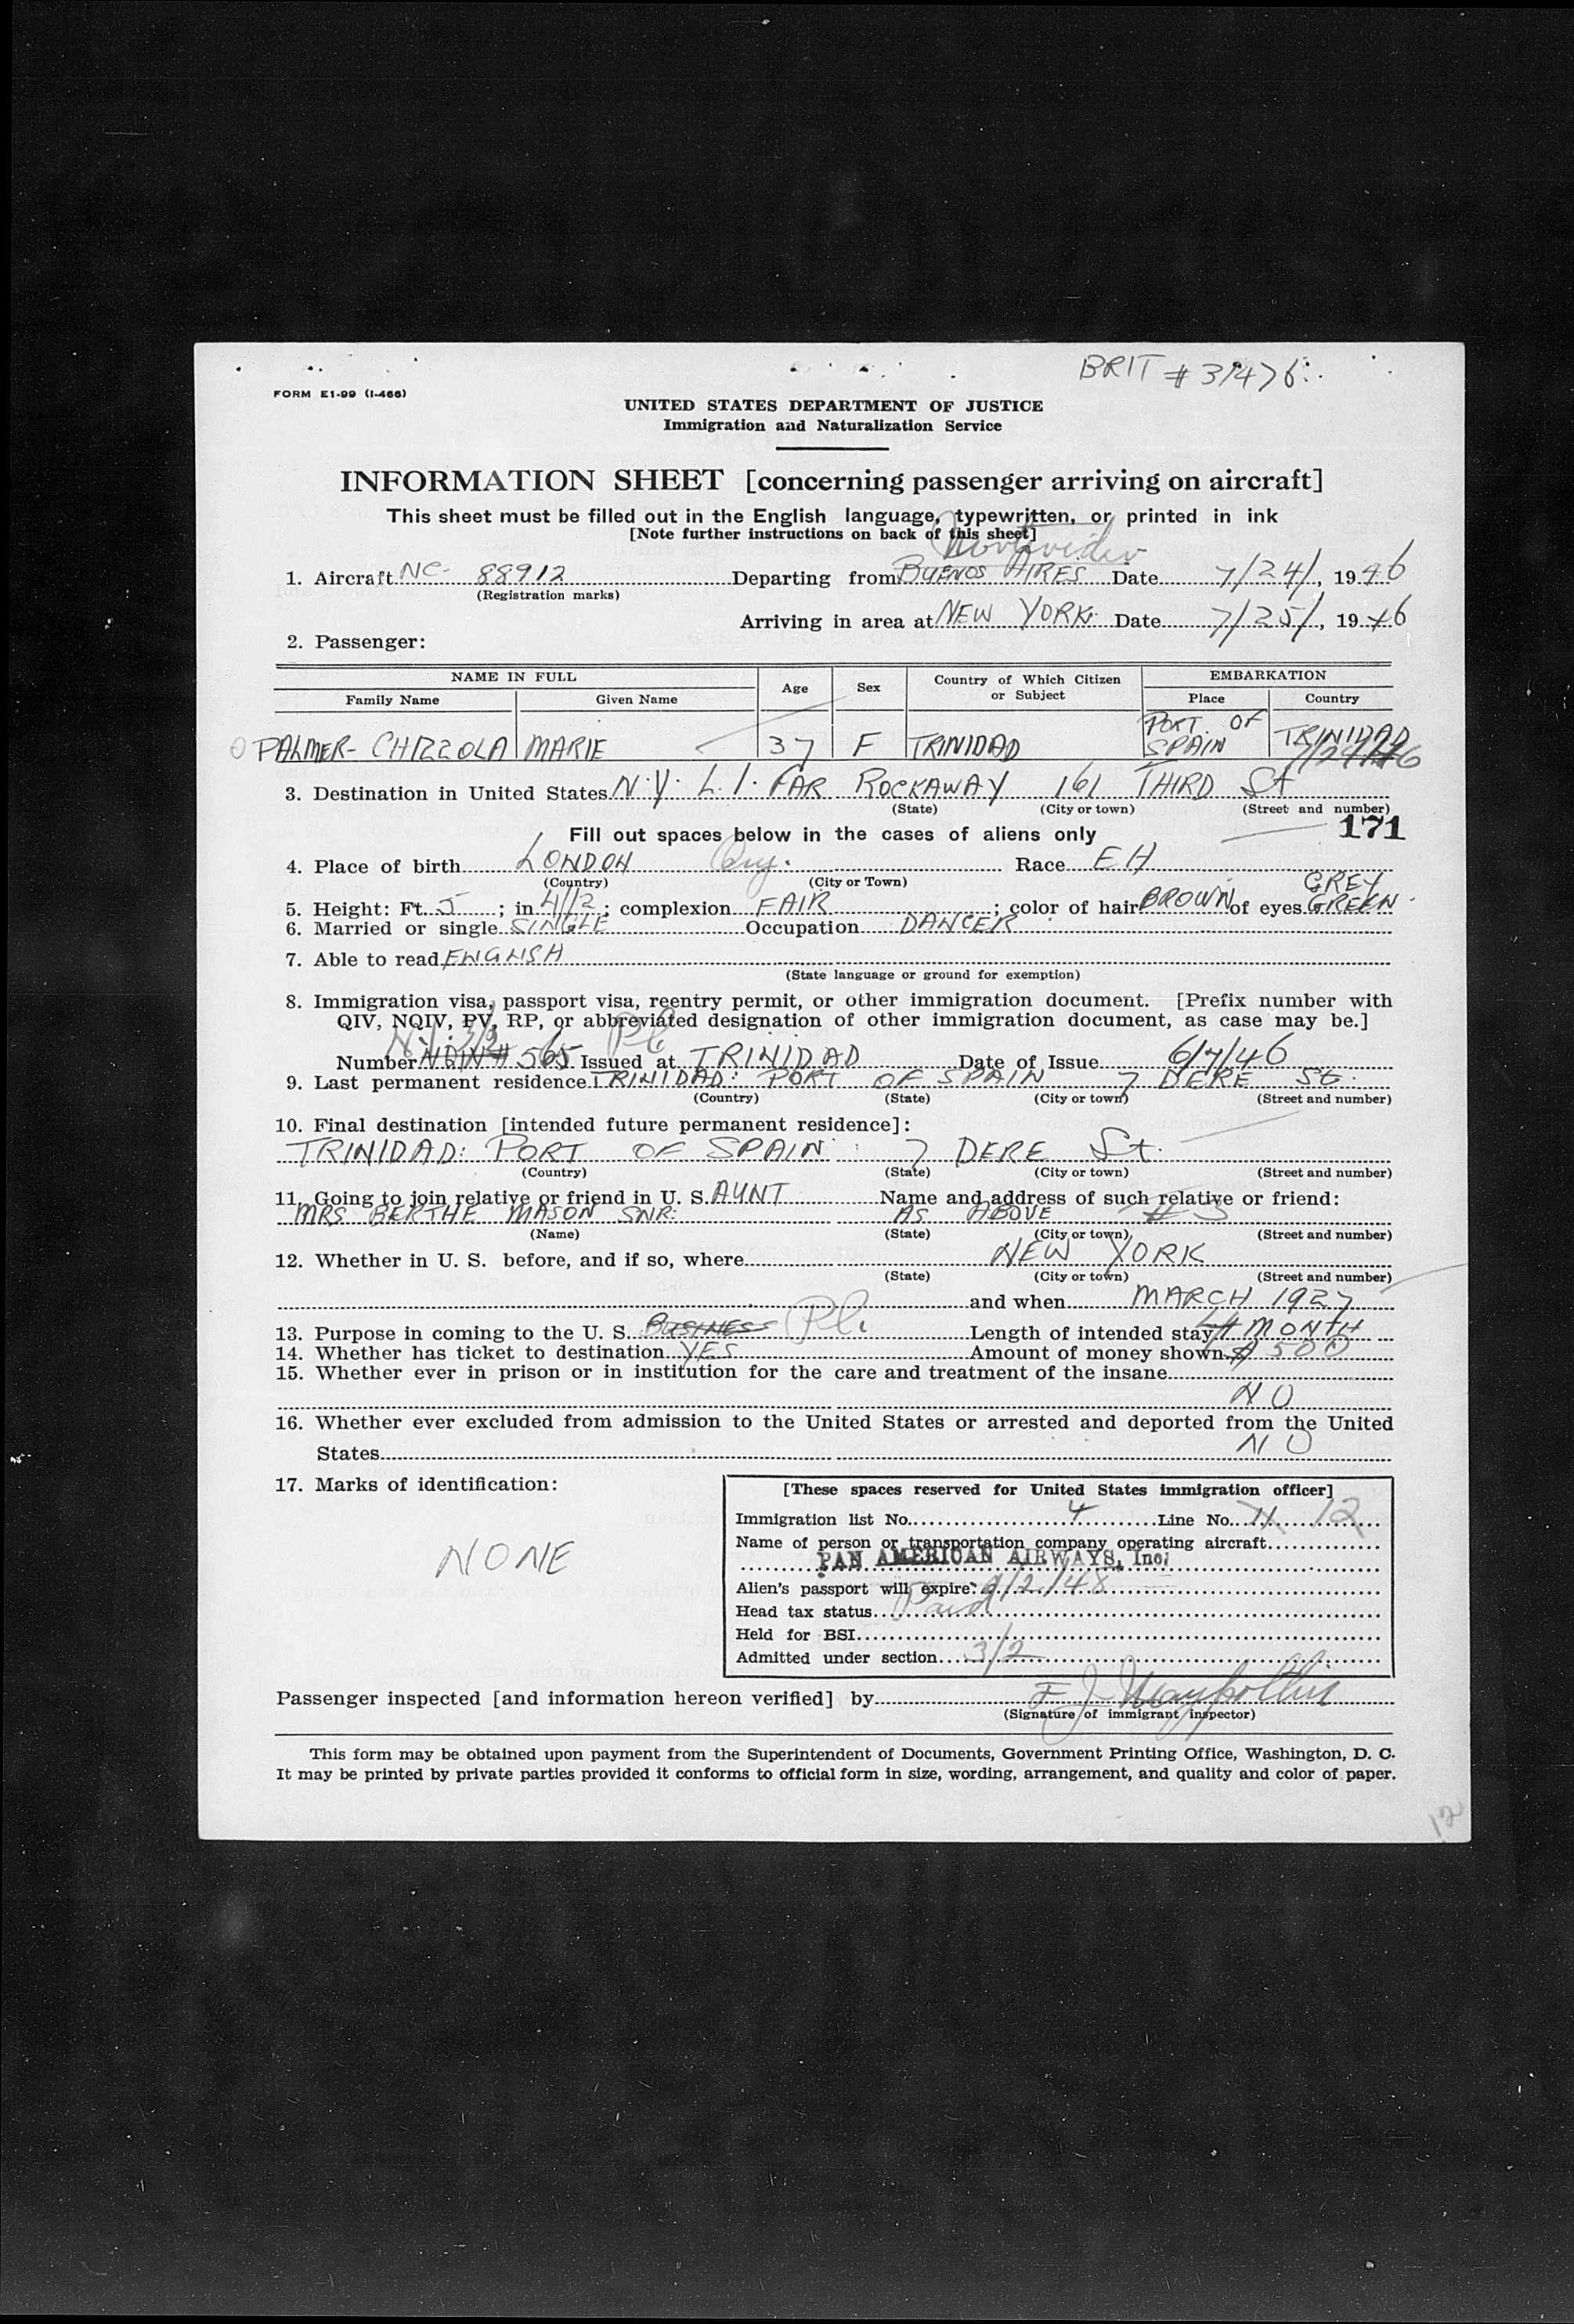 BRIT # 31476
FORM E1-99 (I-466)
UNITED STATES DEPARTMENT OF JUSTICE
Immigration and Naturalization Service
INFORMATION SHEET [concerning passenger arriving on aircraft]
This sheet must be filled out in the English language, typewritten, or printed in ink
[Note further instructions on back of this sheet]
Montevideo
1. Aircraft NC- 88912 Departing from BUENOS AIRES Date 7/24/, 1946
(Registration marks)
Arriving in area at NEW YORK Date 7/25/, 1946
2. Passenger:
NAME IN FULL Age Sex Country of Which Citizen or Subject EMBARKATION
Family Name Given Name Place Country
PALMER- CHIZZOLA MARIE 37 F TRINIDAD PORT OF SPAIN TRINIDAD
7/24/46
3. Destination in United States N.Y. L.I. FAR ROCKAWAY 161 THIRD St
(State) (City or town) (Street and number)
171
Fill out spaces below in the cases of aliens only
4. Place of birth LONDON Race EH
(Country) (City or Town)
GREY
5. Height: Ft. 5; in 4 1/2; complexion FAIR; color of hair BROWN of eyes GREEN
6. Married or single SINGLE Occupation DANCER
7. Able to read ENGLISH
(State language or ground for exemption)
8. Immigration visa, passport visa, reentry permit, or other immigration document. [Prefix number with
QIV, NQIV, PV, RP, or abbreviated designation of other immigration document, as case may be.]
N.I. 3/2 Pl
Number 565 Issued at TRINIDAD Date of Issue 6/7/46
9. Last permanent residence TRINIDAD: PORT OF SPAIN 7 DERE St.
(Country) (State) (City or town) (Street and number)
10. Final destination [intended future permanent residence]:
TRINIDAD: PORT OF SPAIN 7 DERE St.
(Country) (State) (City or town) (Street and number)
11. Going to join relative or friend in U. S. AUNT Name and address of such relative or friend:
MRS BERTHE MASON SNR: AS ABOVE # 3
(Name) (State) (City or town) (Street and number)
12. Whether in U. S. before, and if so, where NEW YORK
(State) (City or town) (Street and number)
and when MARCH 1927
13. Purpose in coming to the U. S. BUSINESS Pl. Length of intended stay 4 MONTH
14. Whether has ticket to destination YES Amount of money shown $ 500
15. Whether ever in prison or in institution for the care and treatment of the insane
NO
16. Whether ever excluded from admission to the United States or arrested and deported from the United
States NO
17. Marks of identification:
NONE
[These spaces reserved for United States immigration officer]
Immigration list No. 4 Line No. 12
Name of person or transportation company operating aircraft
PAN AMERICAN AIRWAYS, Inc.
Alien's passport will expire: 9/2/48
Head tax status Paid
Held for BSI
Admitted under section 3/2
Passenger inspected [and information hereon verified] by
(Signature of immigrant inspector)
This form may be obtained upon payment from the Superintendent of Documents, Government Printing Office, Washington, D. C.
It may be printed by private parties provided it conforms to official form in size, wording, arrangement, and quality and color of paper.
12